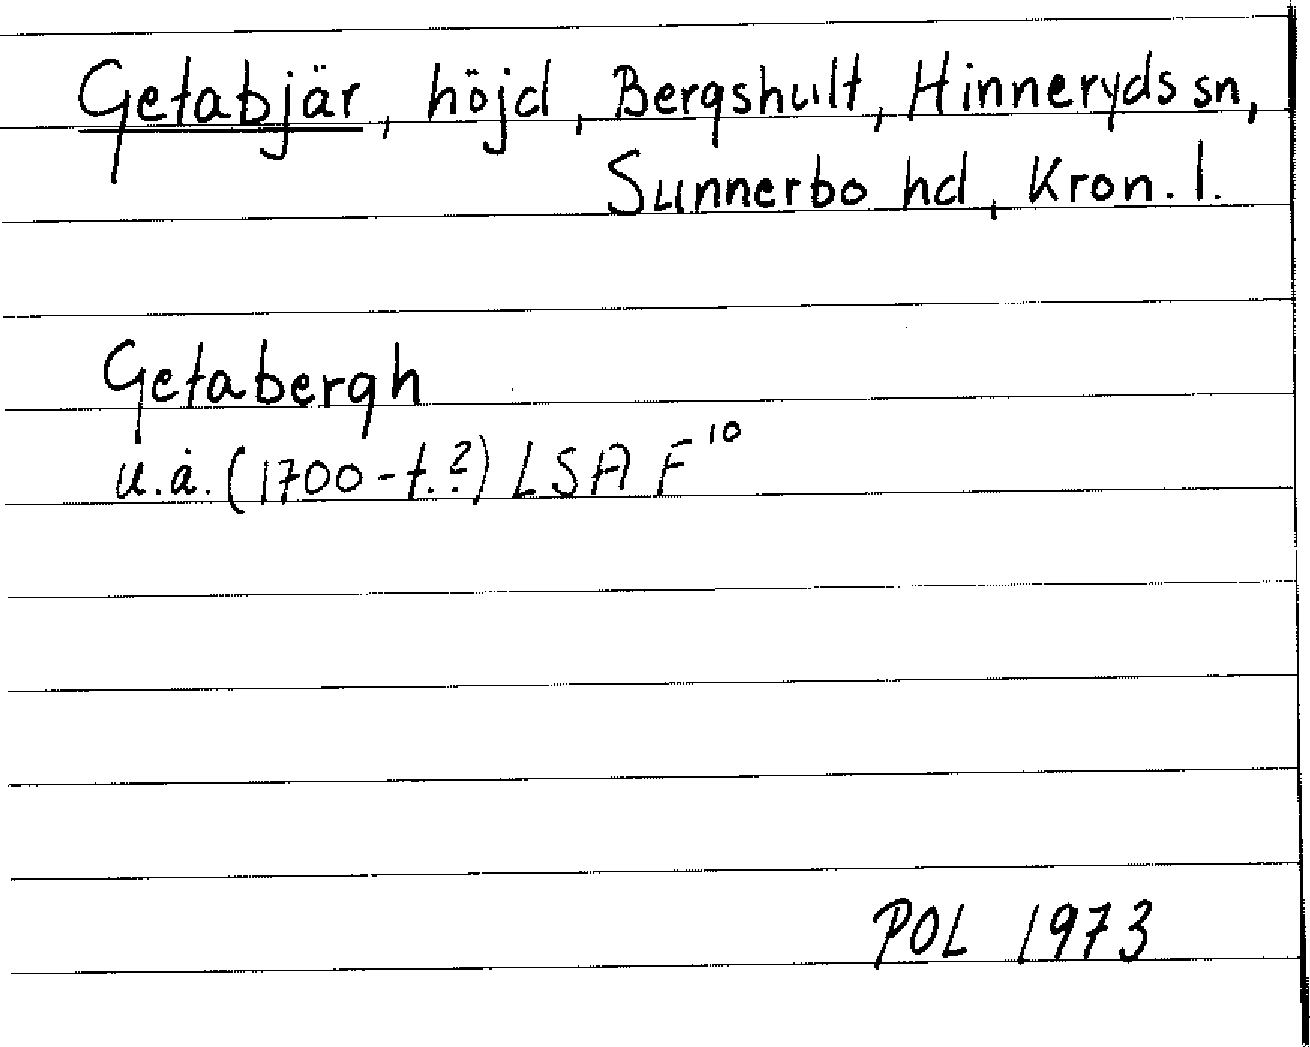 Getabjär, höjd, Bergshult, Hinneryds sn,
Sunnerbo hd, Kron. l.
Getabergh
u.å. (1700-t.?) LSA F¹⁰
POL 1973